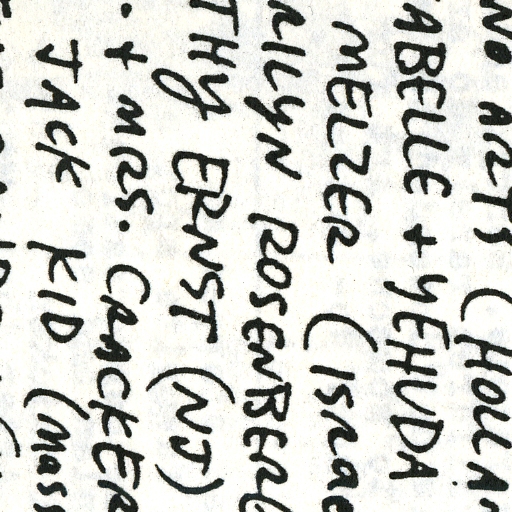 ARTS (HOLLA
ABELLE + YEHUDA
MELZER (ISRAE
RILYN ROSENBER
THY ERNST (NJ)
. + MRS. CRACKER
JACK KID (MASS